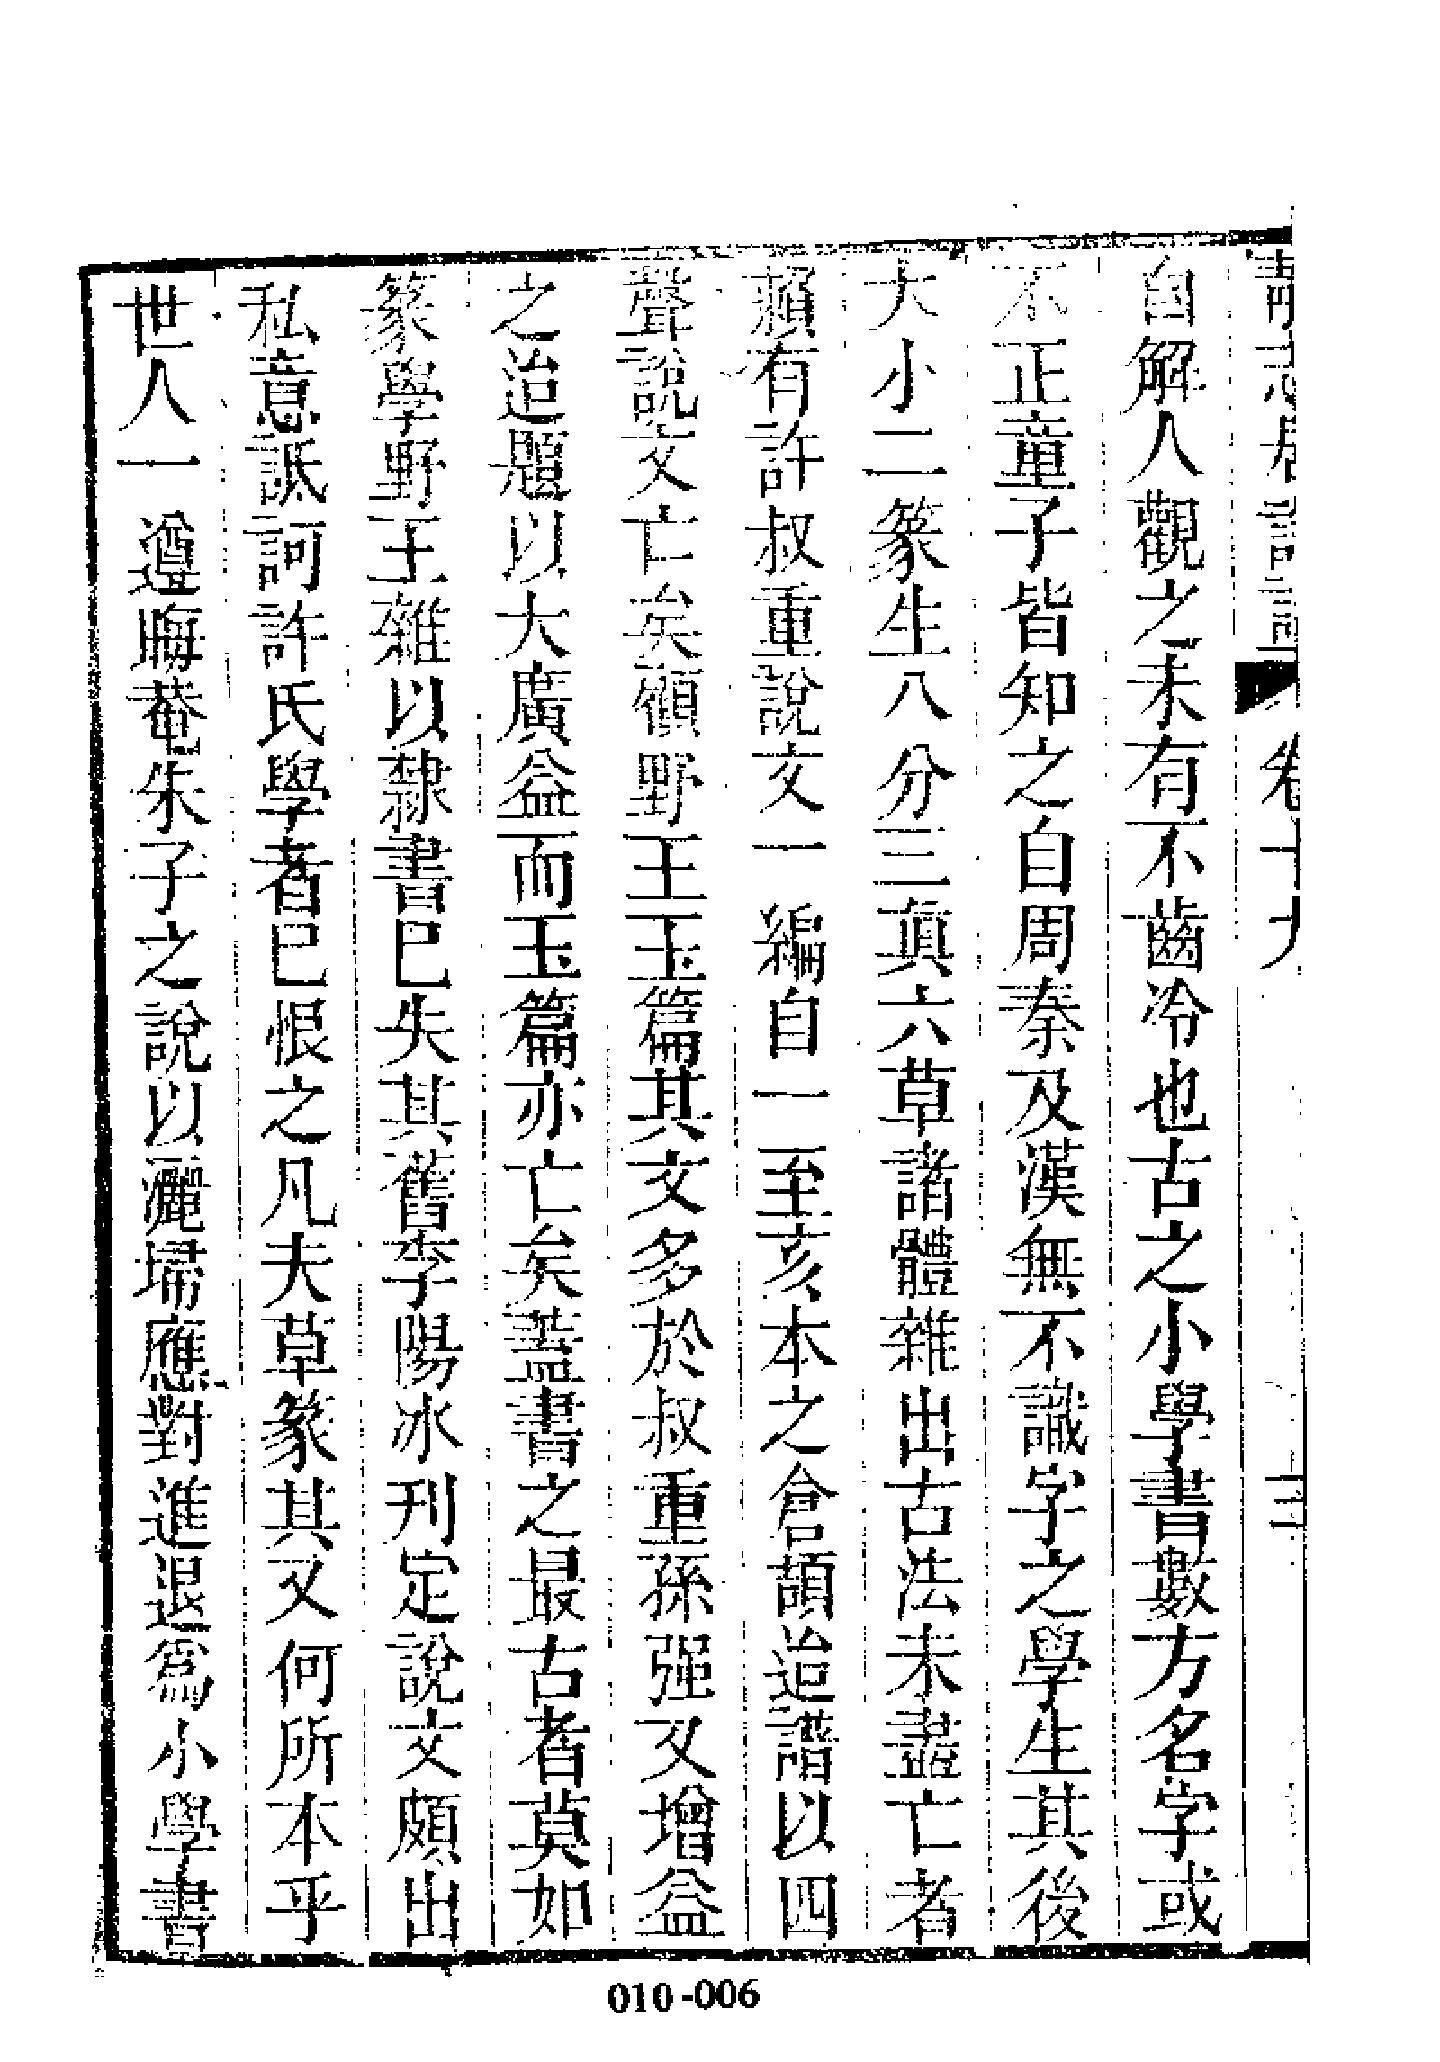 靜志居詩話 卷十九 三
自解人觀之未有不齒冷也古之小學書數方名字或
不正童子皆知之自周秦及漢無不識字之學生其後
大小二篆生八分三眞六草諸體雜出古法未盡亡者
賴有許叔重說文一編自一至亥本之倉頡造譜以四
聲說文亡矣顧野王玉篇其文多於叔重孫强又增益
之造題以大廣益而玉篇亦亡矣蓋書之最古者莫如
篆學野王雜以隸書巳失其舊李陽冰刊定說文頗出
私意詆訶許氏學者巳恨之凡夫草篆其又何所本乎
世人一遵晦菴朱子之說以灑埽應對進退爲小學書
010-006